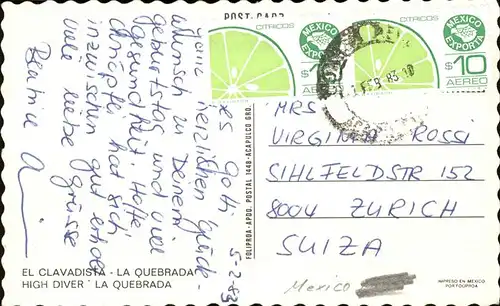 POST CARD
CITRICOS
CITRICOS
MEXICO
EXPORTA
$10
AEREO
MEXICO
EXPORTA
$10
AEREO
FEB 83
5.2.83
Liebes Gotti
herzlichen Glück-
wunsch zu Deinem
Geburtstag und viel
Gesundheit. Hoffe
hat sich
inzwischen gut erholt
viele liebe Grüsse
Beatrice
MRS
VIRGINIA ROSSI
SIHLFELDSTR 152
8004 ZURICH
SUIZA
Mexico
FOLIPROA-APDO. POSTAL 1448-ACAPULCO GRO.
EL CLAVADISTA - LA QUEBRADA
HIGH DIVER - LA QUEBRADA
IMPRESO EN MEXICO
POR FOLIPROA